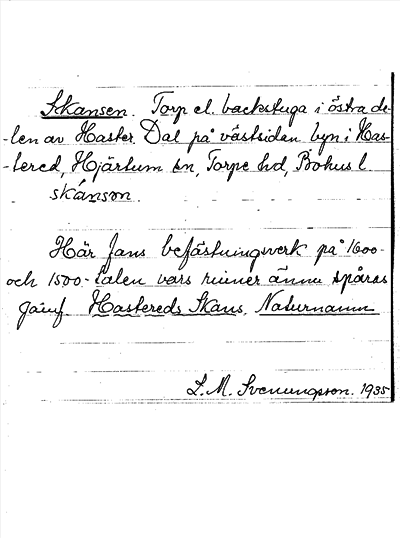 Skansen. Torp el. backstuga i östra de-
-len av Haster. Dal på västsidan byn i Has-
-tered, Hjärtum sn, Torpe hd, Bohus l.
skánsən.
Här fans befästningsverk på 1600-
och 1500-talen vars ruiner ännu spåras
Jämf. Hastereds Skans. Naturnamn
L. M. Svenungsson. 1935